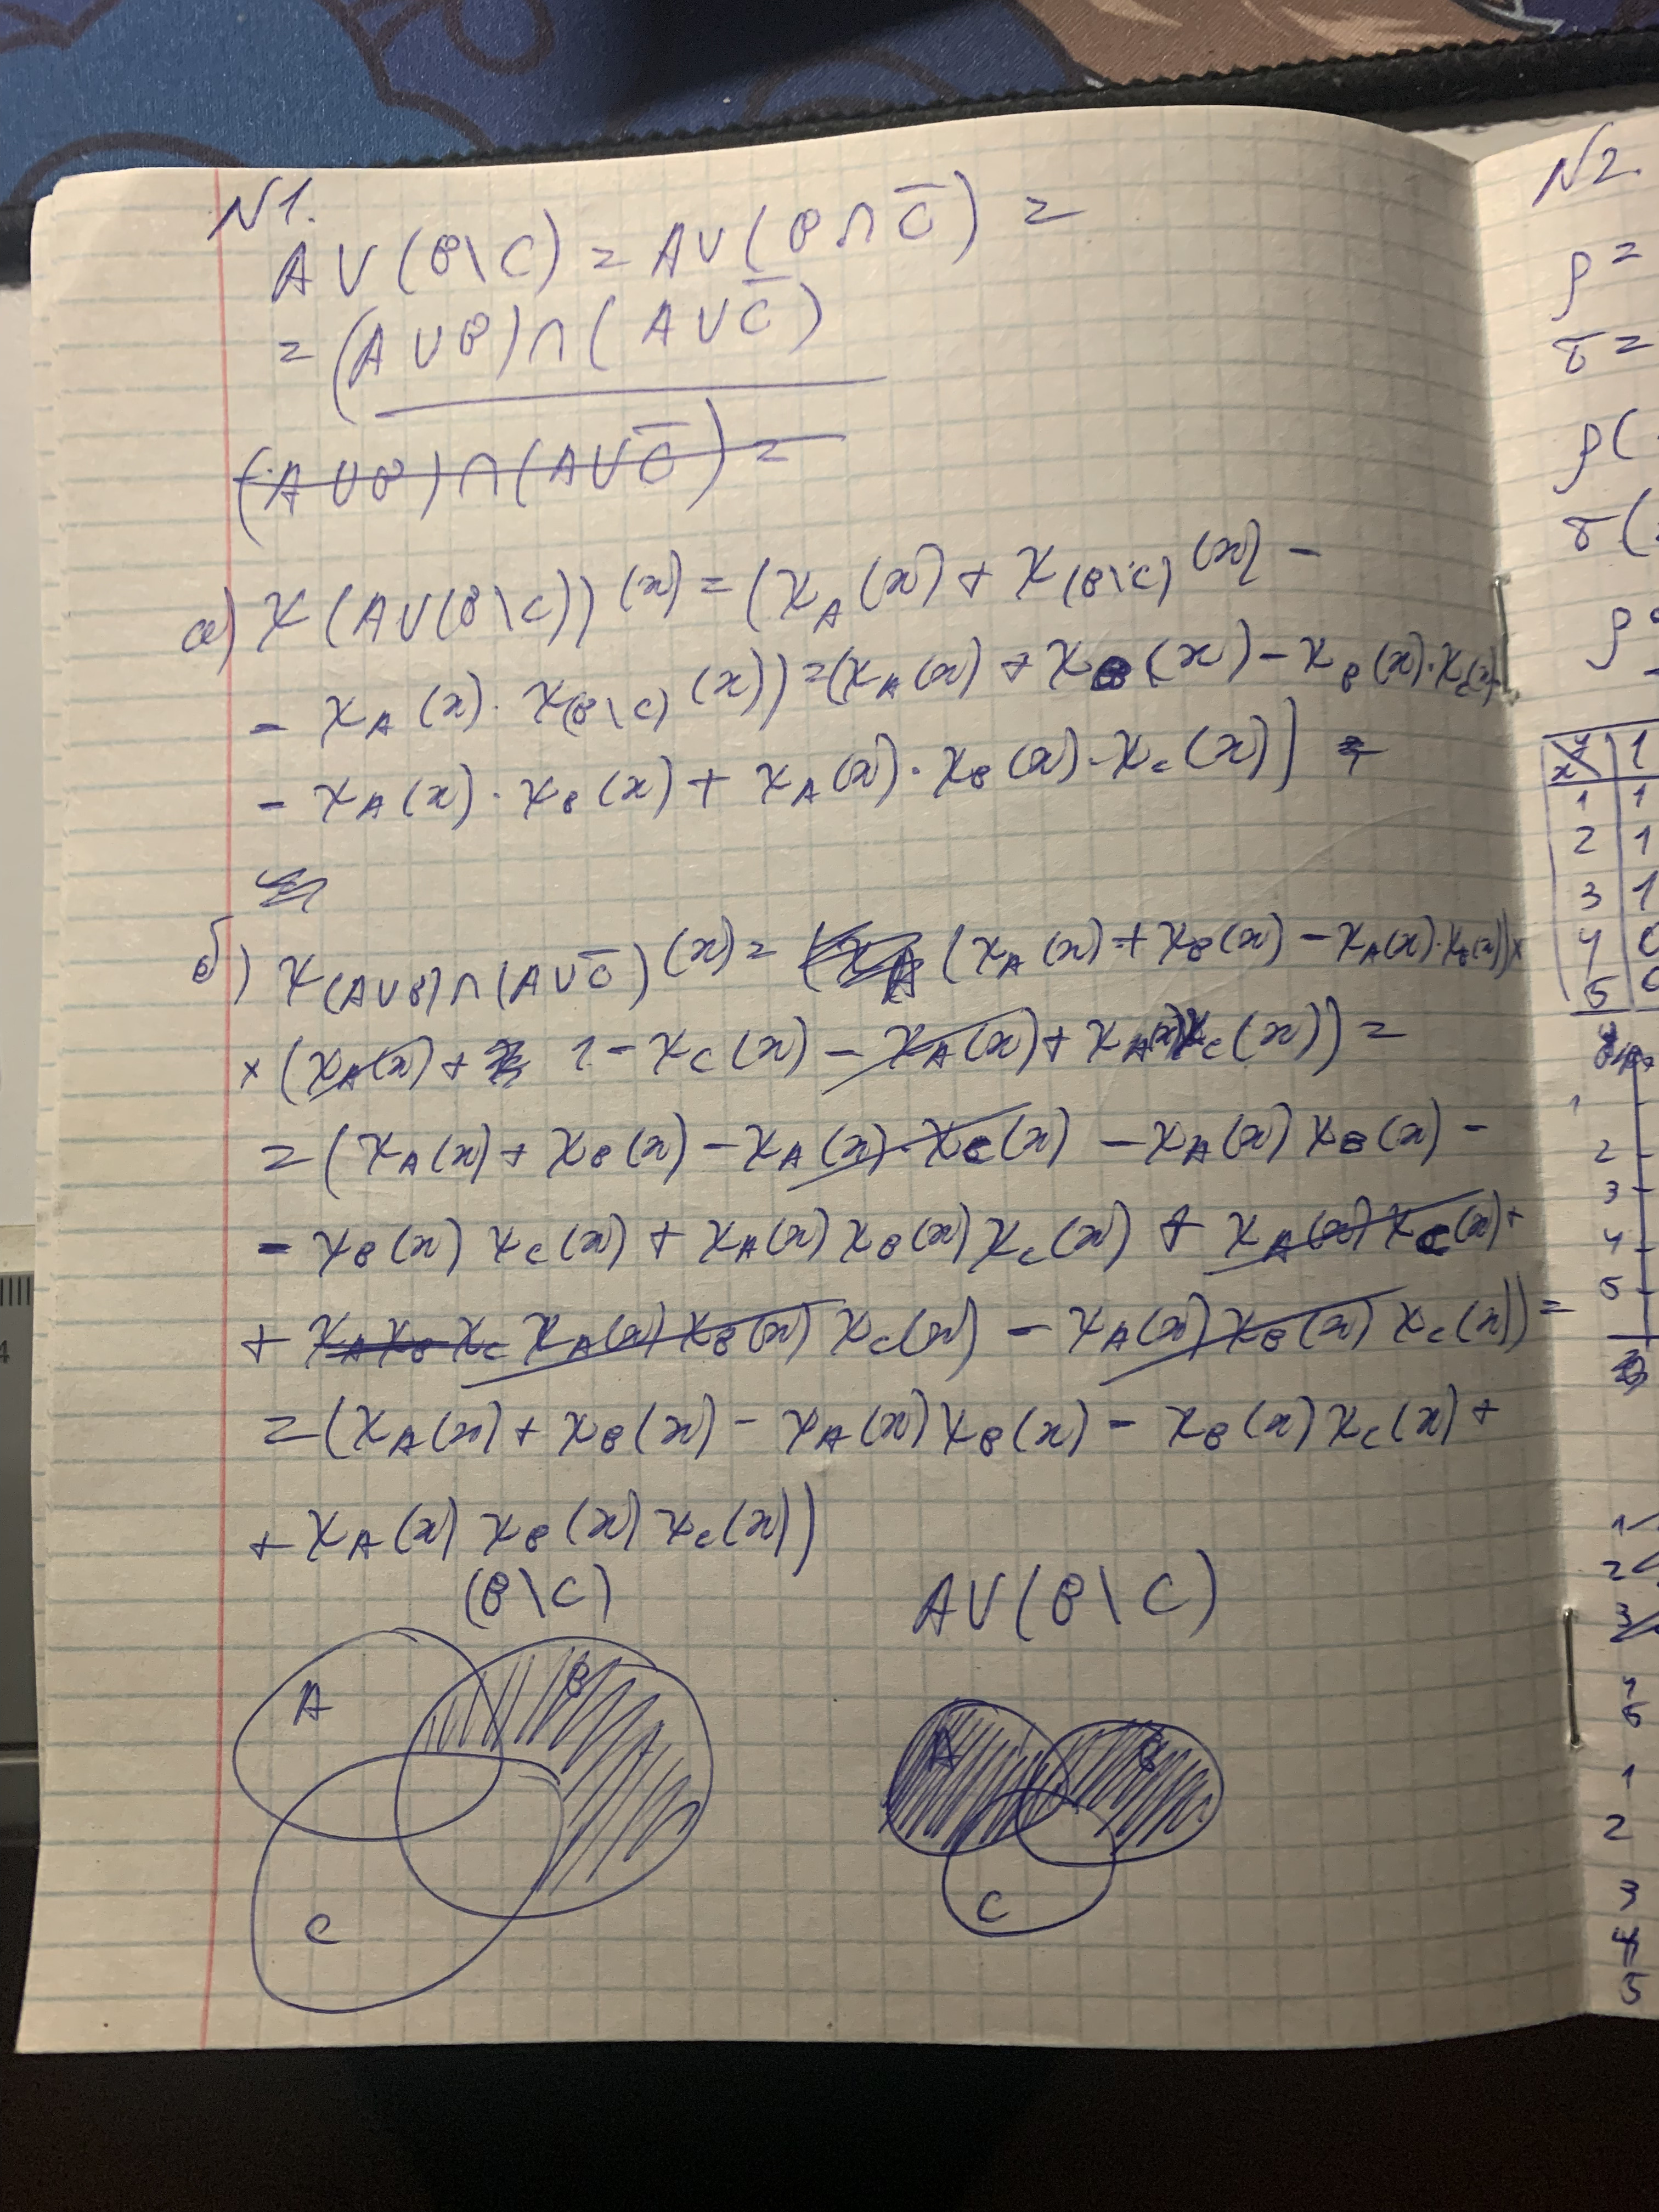 N1.
A ∪ (B\C) = A ∪ (B ∩ C̅) =
= (A ∪ B) ∩ (A ∪ C̅)
(A ∪ B) ∩ (A ∪ C̅) =
а) χ(A∪(B\C))(x) = (χ_A(x) + χ_(B\C)(x) -
- χ_A(x) · χ_(B\C)(x)) = (χ_A(x) + χ_B(x) - χ_B(x) · χ_C(x) -
- χ_A(x) · χ_B(x) + χ_A(x) · χ_B(x) · χ_C(x))
б) χ_(A∪B)∩(A∪C̅)(x) = (χ_A(x) + χ_B(x) - χ_A(x) · χ_B(x)) ×
× (χ_A(x) + 1 - χ_C(x) - χ_A(x) + χ_A(x)χ_C(x)) =
= (χ_A(x) + χ_B(x) - χ_A(x) · χ_C(x) - χ_A(x) χ_B(x) -
- χ_B(x) χ_C(x) + χ_A(x) χ_B(x) χ_C(x) + χ_A(x) χ_C(x) +
+ χ_A χ_B χ_C χ_A(x) χ_B(x) χ_C(x) - χ_A(x) χ_B(x) χ_C(x)) =
= (χ_A(x) + χ_B(x) - χ_A(x) χ_B(x) - χ_B(x) χ_C(x) +
+ χ_A(x) χ_B(x) χ_C(x))
(B\C)
A∪(B\C)
A
B
C
A
B
C
N2.
ρ =
σ =
ρ(
σ(
ρ
x y 1
1 1
2 1
3 1
4 0
5 0
1
2
3
4
5
1
2
3
1
2
3
4
5